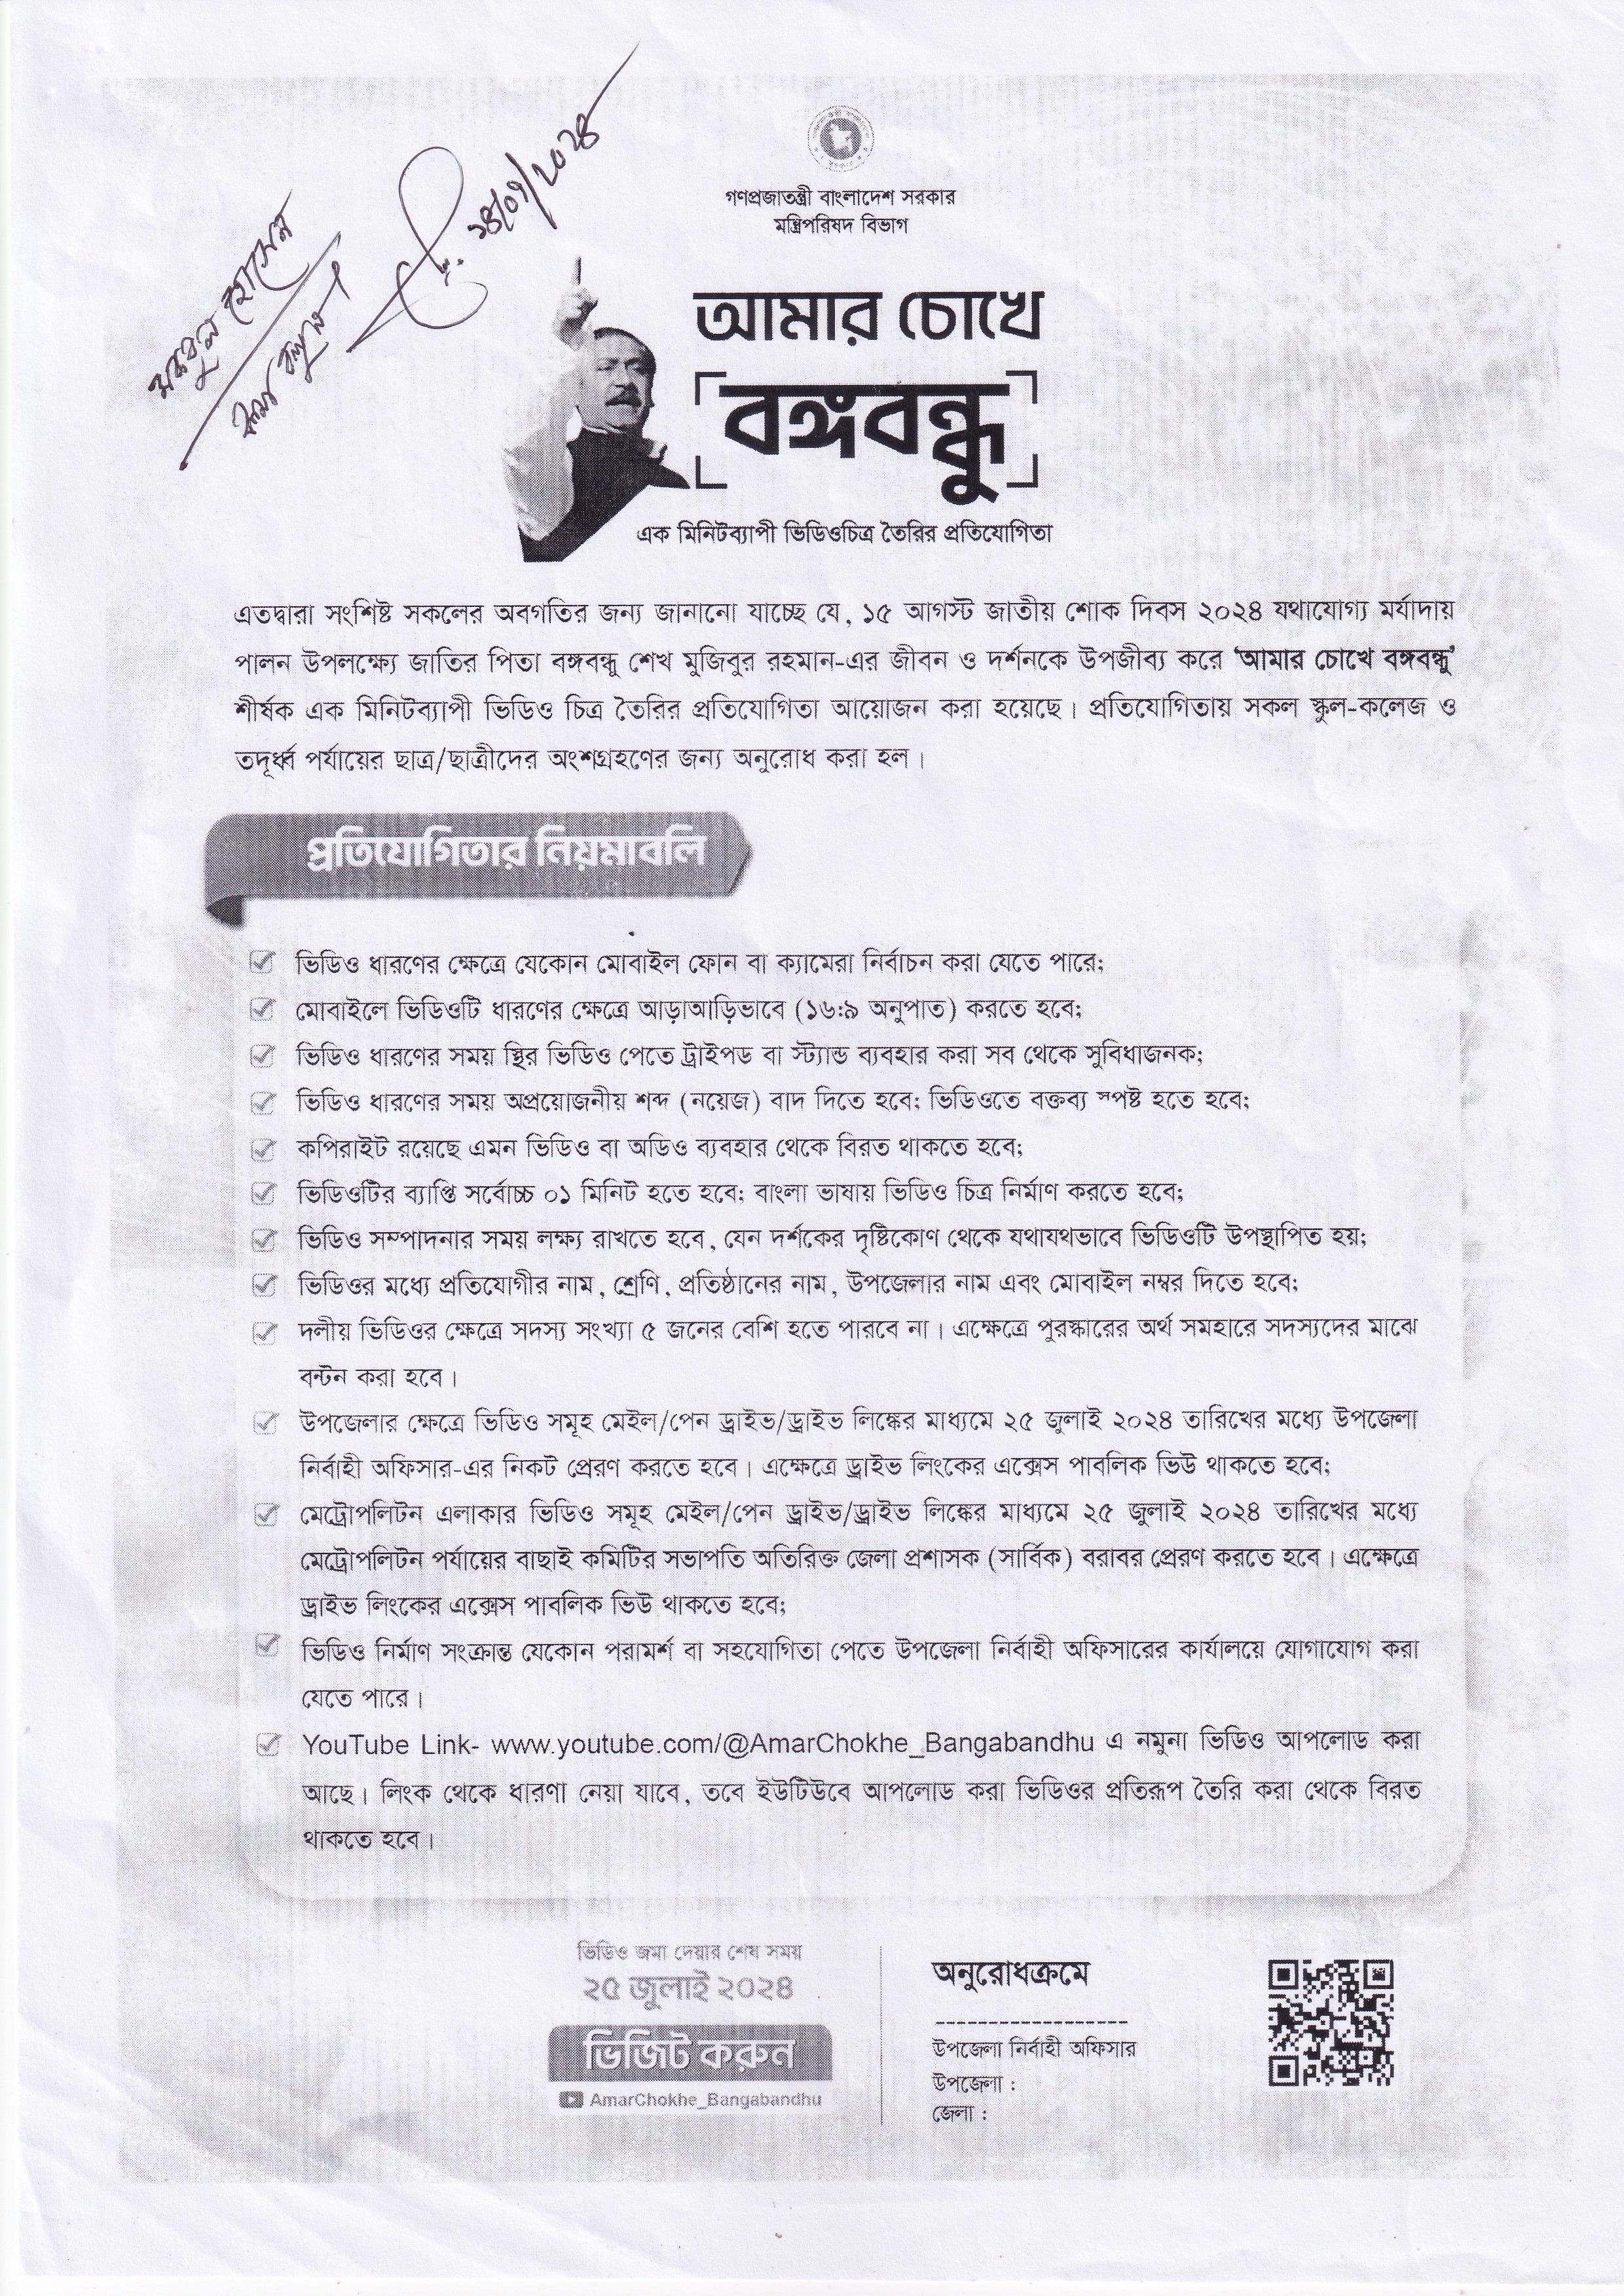 গণপ্রজাতন্ত্রী বাংলাদেশ সরকার
মন্ত্রিপরিষদ বিভাগ
মকবুল হোসেন
১৪/০৭/২০২৪
আমার চোখে
বঙ্গবন্ধু
এক মিনিটব্যাপী ভিডিওচিত্র তৈরির প্রতিযোগিতা
এতদ্বারা সংশিষ্ট সকলের অবগতির জন্য জানানো যাচ্ছে যে, ১৫ আগস্ট জাতীয় শোক দিবস ২০২৪ যথাযোগ্য মর্যাদায়
পালন উপলক্ষ্যে জাতির পিতা বঙ্গবন্ধু শেখ মুজিবুর রহমান-এর জীবন ও দর্শনকে উপজীব্য করে ‘আমার চোখে বঙ্গবন্ধু’
শীর্ষক এক মিনিটব্যাপী ভিডিও চিত্র তৈরির প্রতিযোগিতা আয়োজন করা হয়েছে। প্রতিযোগিতায় সকল স্কুল-কলেজ ও
তদূর্ধ্ব পর্যায়ের ছাত্র/ছাত্রীদের অংশগ্রহণের জন্য অনুরোধ করা হল।
প্রতিযোগিতার নিয়মাবলি
ভিডিও ধারণের ক্ষেত্রে যেকোন মোবাইল ফোন বা ক্যামেরা নির্বাচন করা যেতে পারে;
মোবাইলে ভিডিওটি ধারণের ক্ষেত্রে আড়াআড়িভাবে (১৬:৯ অনুপাত) করতে হবে;
ভিডিও ধারণের সময় স্থির ভিডিও পেতে ট্রাইপড বা স্ট্যান্ড ব্যবহার করা সব থেকে সুবিধাজনক;
ভিডিও ধারণের সময় অপ্রয়োজনীয় শব্দ (নয়েজ) বাদ দিতে হবে; ভিডিওতে বক্তব্য স্পষ্ট হতে হবে;
কপিরাইট রয়েছে এমন ভিডিও বা অডিও ব্যবহার থেকে বিরত থাকতে হবে;
ভিডিওটির ব্যাপ্তি সর্বোচ্চ ০১ মিনিট হতে হবে; বাংলা ভাষায় ভিডিও চিত্র নির্মাণ করতে হবে;
ভিডিও সম্পাদনার সময় লক্ষ্য রাখতে হবে, যেন দর্শকের দৃষ্টিকোণ থেকে যথাযথভাবে ভিডিওটি উপস্থাপিত হয়;
ভিডিওর মধ্যে প্রতিযোগীর নাম, শ্রেণি, প্রতিষ্ঠানের নাম, উপজেলার নাম এবং মোবাইল নম্বর দিতে হবে;
দলীয় ভিডিওর ক্ষেত্রে সদস্য সংখ্যা ৫ জনের বেশি হতে পারবে না। এক্ষেত্রে পুরস্কারের অর্থ সমহারে সদস্যদের মাঝে
বন্টন করা হবে।
উপজেলার ক্ষেত্রে ভিডিও সমূহ মেইল/পেন ড্রাইভ/ড্রাইভ লিঙ্কের মাধ্যমে ২৫ জুলাই ২০২৪ তারিখের মধ্যে উপজেলা
নির্বাহী অফিসার-এর নিকট প্রেরণ করতে হবে। এক্ষেত্রে ড্রাইভ লিংকের এক্সেস পাবলিক ভিউ থাকতে হবে;
মেট্রোপলিটন এলাকার ভিডিও সমূহ মেইল/পেন ড্রাইভ/ড্রাইভ লিঙ্কের মাধ্যমে ২৫ জুলাই ২০২৪ তারিখের মধ্যে
মেট্রোপলিটন পর্যায়ের বাছাই কমিটির সভাপতি অতিরিক্ত জেলা প্রশাসক (সার্বিক) বরাবর প্রেরণ করতে হবে। এক্ষেত্রে
ড্রাইভ লিংকের এক্সেস পাবলিক ভিউ থাকতে হবে;
ভিডিও নির্মাণ সংক্রান্ত যেকোন পরামর্শ বা সহযোগিতা পেতে উপজেলা নির্বাহী অফিসারের কার্যালয়ে যোগাযোগ করা
যেতে পারে।
YouTube Link- www.youtube.com/@AmarChokhe_Bangabandhu এ নমুনা ভিডিও আপলোড করা
আছে। লিংক থেকে ধারণা নেয়া যাবে, তবে ইউটিউবে আপলোড করা ভিডিওর প্রতিরূপ তৈরি করা থেকে বিরত
থাকতে হবে।
ভিডিও জমা দেয়ার শেষ সময়
২৫ জুলাই ২০২৪
ভিজিট করুন
AmarChokhe_Bangabandhu
অনুরোধক্রমে
------------------
উপজেলা নির্বাহী অফিসার
উপজেলা :
জেলা :